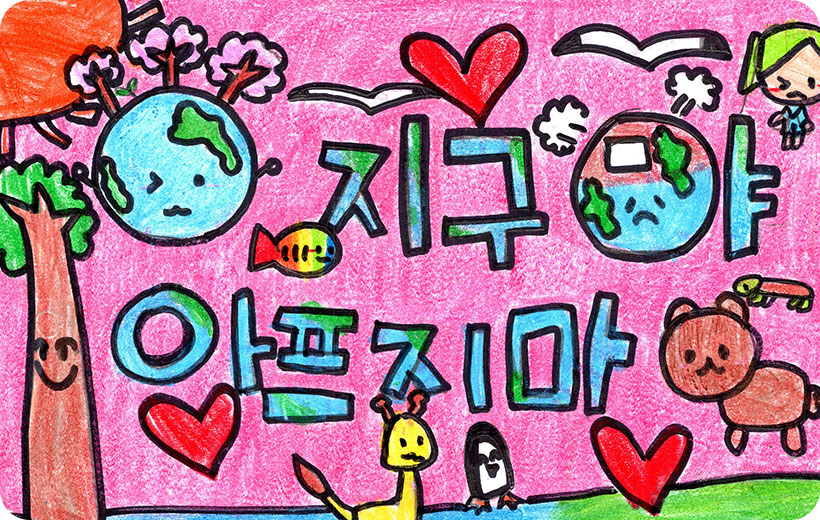 지구야
아프지마